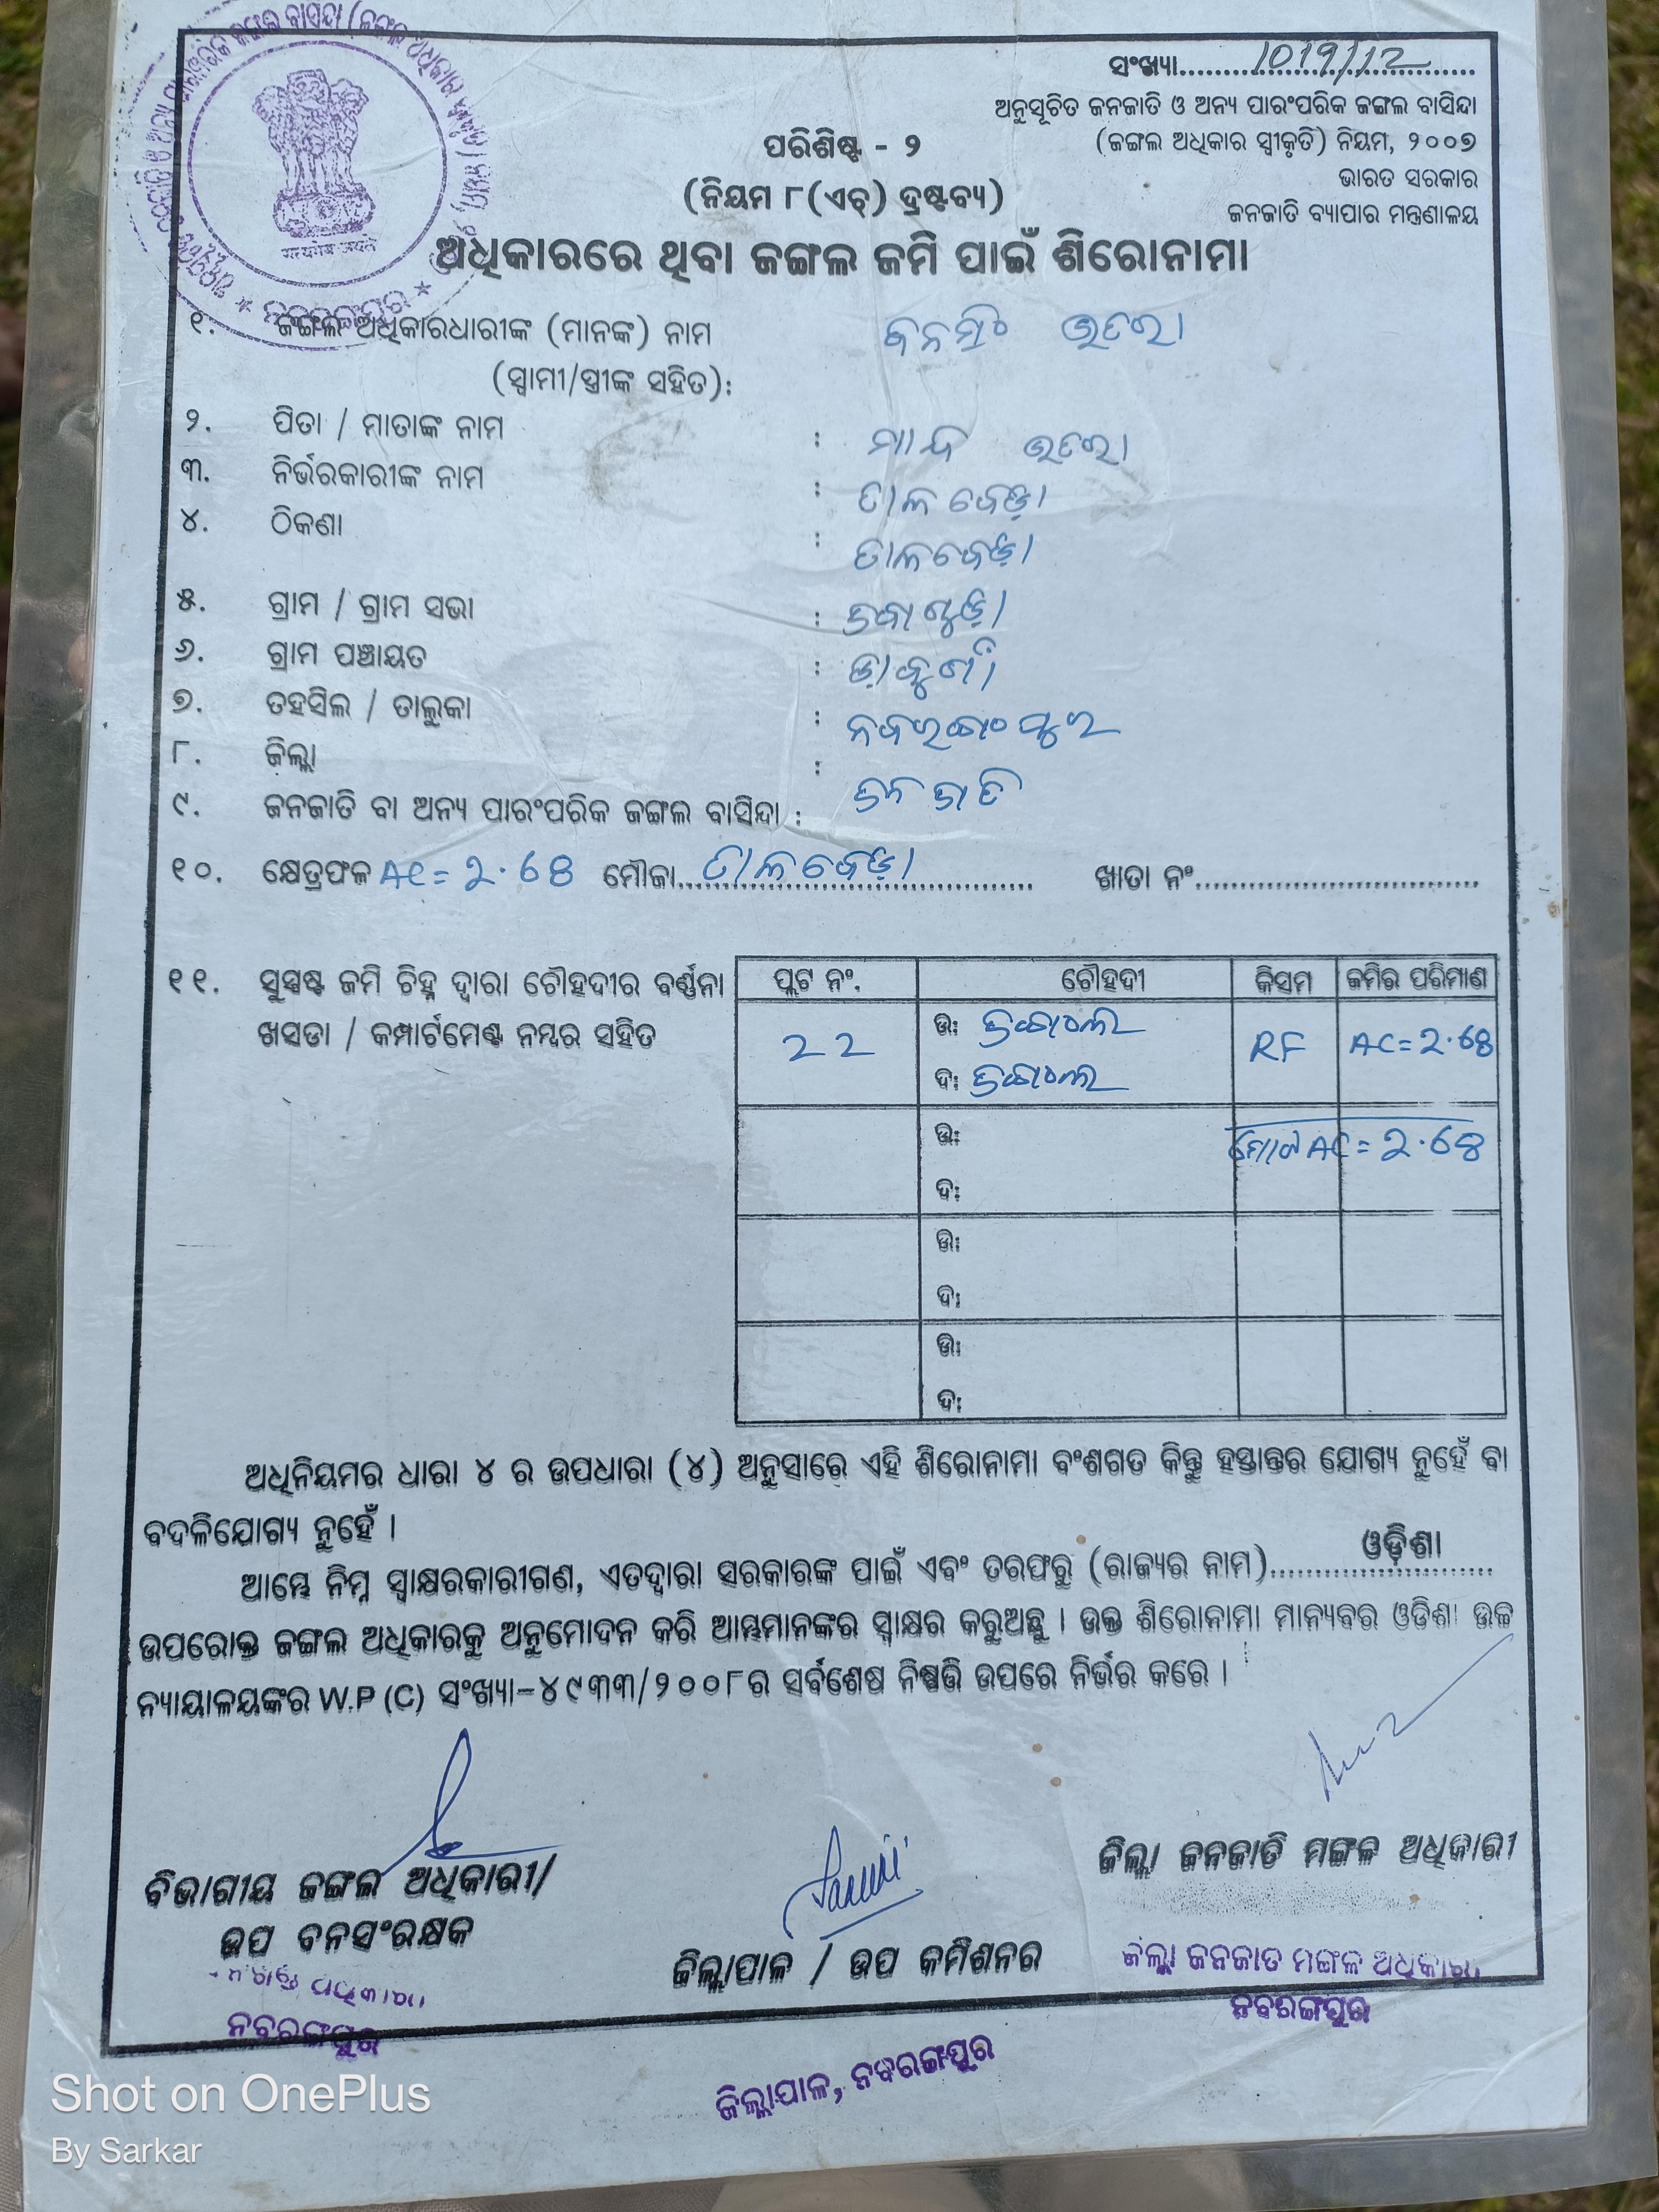 ସଂଖ୍ୟା.......1019/12.......
ଅନୁସୂଚିତ ଜନଜାତି ଓ ଅନ୍ୟ ପାରଂପରିକ ଜଙ୍ଗଲ ବାସିନ୍ଦା
(ଜଙ୍ଗଲ ଅଧିକାର ସ୍ୱୀକୃତି) ନିୟମ, ୨୦୦୭
ଭାରତ ସରକାର
ଜନଜାତି ବ୍ୟାପାର ମନ୍ତ୍ରଣାଳୟ
ପରିଶିଷ୍ଟ - ୨
(ନିୟମ ୮(ଏଚ୍) ଦ୍ରଷ୍ଟବ୍ୟ)
ଅଧିକାରରେ ଥିବା ଜଙ୍ଗଲ ଜମି ପାଇଁ ଶିରୋନାମା
୧. ଜଙ୍ଗଲ ଅଧିକାରଧାରୀଙ୍କ (ମାନଙ୍କ) ନାମ
(ସ୍ୱାମୀ/ସ୍ତ୍ରୀଙ୍କ ସହିତ):
୨. ପିତା / ମାତାଙ୍କ ନାମ :
୩. ନିର୍ଭରକାରୀଙ୍କ ନାମ : ତାଳବେଡ଼ା
୪. ଠିକଣା : ତାଳବେଡ଼ା
୫. ଗ୍ରାମ / ଗ୍ରାମ ସଭା :
୬. ଗ୍ରାମ ପଞ୍ଚାୟତ :
୭. ତହସିଲ / ତାଲୁକା : ନବରଙ୍ଗପୁର
୮. ଜିଲ୍ଲା : ଜନଜାତି
୯. ଜନଜାତି ବା ଅନ୍ୟ ପାରଂପରିକ ଜଙ୍ଗଲ ବାସିନ୍ଦା :
୧୦. କ୍ଷେତ୍ରଫଳ AC = ୨.68 ମୌଜା...ତାଳବେଡ଼ା............ ଖାତା ନଂ................................
୧୧. ସୁସ୍ପଷ୍ଟ ଜମି ଚିହ୍ନ ଦ୍ୱାରା ଚୌହଦୀର ବର୍ଣ୍ଣନା
ଖସଡା / କମ୍ପାର୍ଟମେଣ୍ଟ ନମ୍ବର ସହିତ
ପ୍ଲଟ ନଂ. ଚୌହଦୀ କିସମ ଜମିର ପରିମାଣ
22 ଉଃ ଜଙ୍ଗଲ RF AC = ୨.68
ଦଃ ଜଙ୍ଗଲ
ଉଃ ମୋଟ AC = ୨.68
ଦଃ
ଉଃ
ଦଃ
ଉଃ
ଦଃ
ଅଧିନିୟମର ଧାରା ୪ ର ଉପଧାରା (୪) ଅନୁସାରେ ଏହି ଶିରୋନାମା ବଂଶଗତ କିନ୍ତୁ ହସ୍ତାନ୍ତର ଯୋଗ୍ୟ ନୁହେଁ ବା
ବଦଳିଯୋଗ୍ୟ ନୁହେଁ ।
ଆମ୍ଭେ ନିମ୍ନ ସ୍ୱାକ୍ଷରକାରୀଗଣ, ଏତଦ୍ୱାରା ସରକାରଙ୍କ ପାଇଁ ଏବଂ ତରଫରୁ (ରାଜ୍ୟର ନାମ)......ଓଡ଼ିଶା......
ଉପରୋକ୍ତ ଜଙ୍ଗଲ ଅଧିକାରକୁ ଅନୁମୋଦନ କରି ଆମ୍ଭମାନଙ୍କର ସ୍ୱାକ୍ଷର କରୁଅଛୁ । ଉକ୍ତ ଶିରୋନାମା ମାନ୍ୟବର ଓଡିଶା ଉଚ୍ଚ
ନ୍ୟାୟାଳୟଙ୍କର W.P (C) ସଂଖ୍ୟା-୪୯୩୩/୨୦୦୮ର ସର୍ବଶେଷ ନିଷ୍ପତ୍ତି ଉପରେ ନିର୍ଭର କରେ ।
ବିଭାଗୀୟ ଜଙ୍ଗଲ ଅଧିକାରୀ/
ଉପ ବନସଂରକ୍ଷକ
ନବରଙ୍ଗପୁର
ଜିଲ୍ଲାପାଳ / ଉପ କମିଶନର
ଜିଲ୍ଲାପାଳ, ନବରଙ୍ଗପୁର
ଜିଲ୍ଲା ଜନଜାତି ମଙ୍ଗଳ ଅଧିକାରୀ
ଜିଲ୍ଲା ଜନଜାତି ମଙ୍ଗଳ ଅଧିକାରୀ
ନବରଙ୍ଗପୁର
Shot on OnePlus
By Sarkar